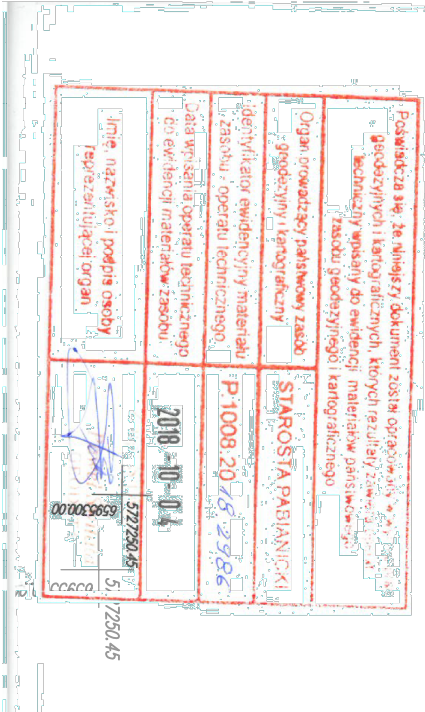 Poświadcza się, że niniejszy dokument został opracowany w
geodezyjnych i kartograficznych, których rezultaty
techniczny wpisany do ewidencji materiałów państwowego
zasobu geodezyjnego i kartograficznego
Organ prowadzący państwowy zasób
geodezyjny i kartograficzny
STAROSTA PABIANICKI
Identyfikator ewidencyjny materiału
zasobu operatu technicznego
P.1008.2018.2986
Data wpisania operatu technicznego
do ewidencji materiałów zasobu
2018-10-04
Imię, nazwisko i podpis osoby
reprezentującej organ
5727250.45
6595300.00
7250.45